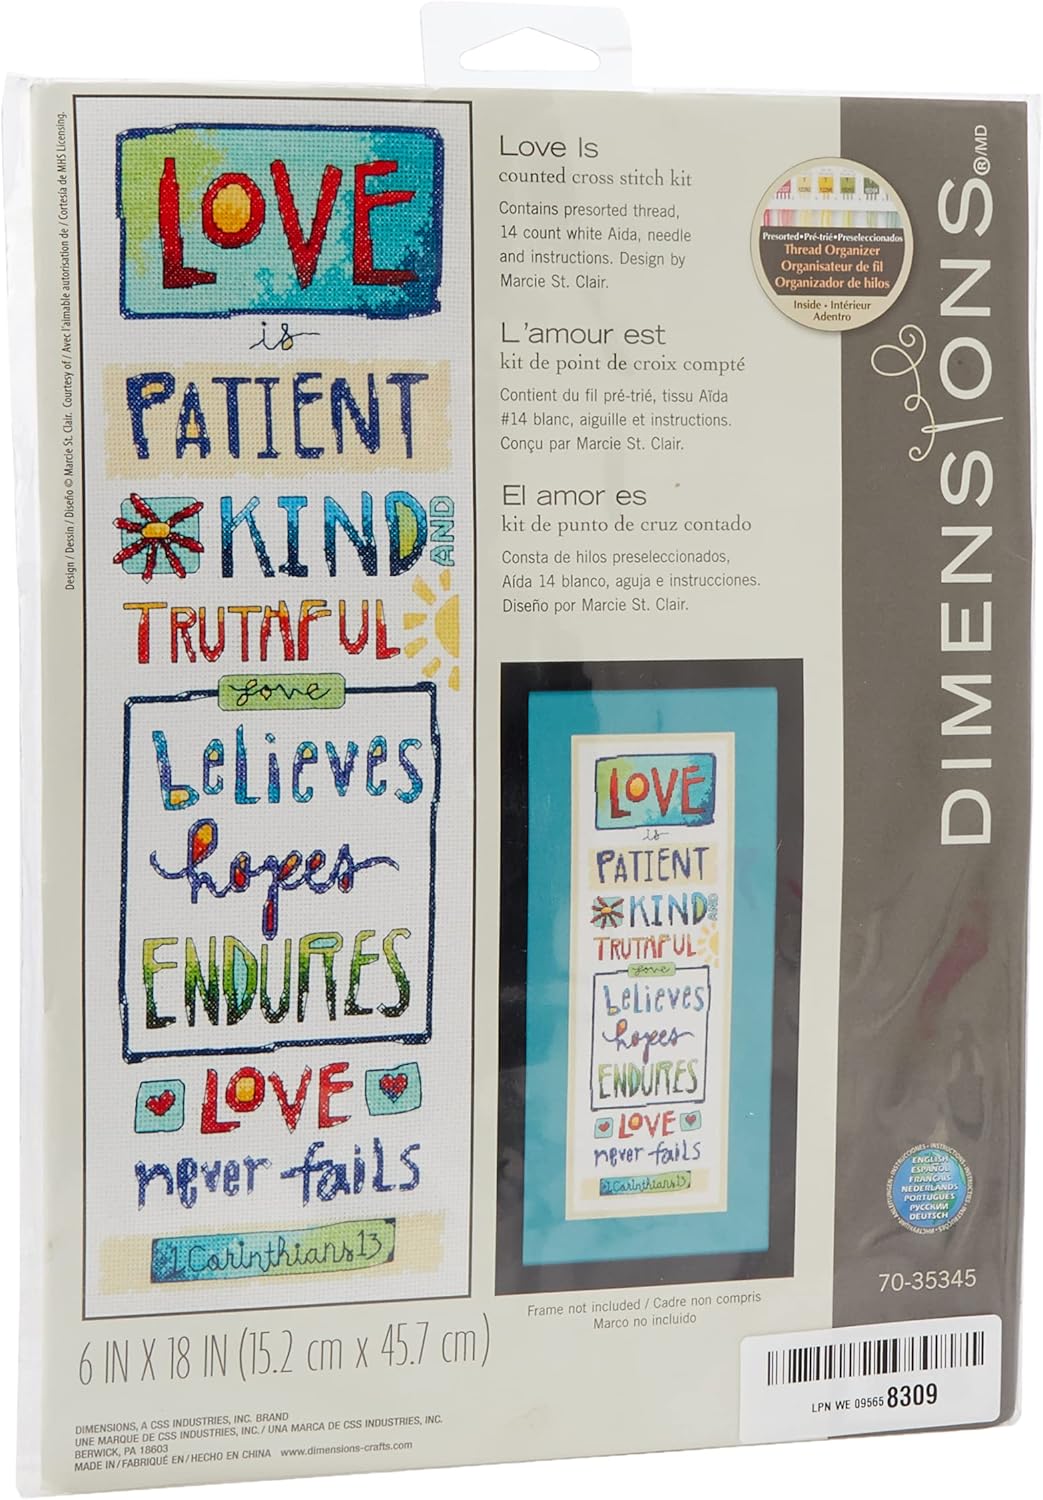 Design / Dessin / Diseño © Marcie St. Clair. Courtesy of / Avec l'aimable autorisation de / Cortesía de MHS Licensing.
LOVE
is
PATIENT
KIND AND
TRUTHFUL
love
believes
hopes
ENDURES
LOVE
never fails
1 Corinthians 13
6 IN X 18 IN (15.2 cm x 45.7 cm)
DIMENSIONS, A CSS INDUSTRIES, INC. BRAND
UNE MARQUE DE CSS INDUSTRIES, INC. / UNA MARCA DE CSS INDUSTRIES, INC.
BERWICK, PA 18603
MADE IN / FABRIQUÉ EN / HECHO EN CHINA www.dimensions-crafts.com
Love Is
counted cross stitch kit
Contains presorted thread,
14 count white Aida, needle
and instructions. Design by
Marcie St. Clair.
L'amour est
kit de point de croix compté
Contient du fil pré-trié, tissu Aïda
#14 blanc, aiguille et instructions.
Conçu par Marcie St. Clair.
El amor es
kit de punto de cruz contado
Consta de hilos preseleccionados,
Aída 14 blanco, aguja e instrucciones.
Diseño por Marcie St. Clair.
Presorted • Pré-trié • Preseleccionados
Thread Organizer
Organisateur de fil
Organizador de hilos
Inside • Intérieur
Adentro
LOVE
is
PATIENT
KIND AND
TRUTHFUL
love
believes
hopes
ENDURES
LOVE
never fails
1 Corinthians 13
Frame not included / Cadre non compris
Marco no incluido
DIMENSIONS®/MD
ENGLISH
ESPAÑOL
FRANÇAIS
NEDERLANDS
PORTUGUÊS
РУССКИЙ
DEUTSCH
70-35345
LPN WE 09565 8309